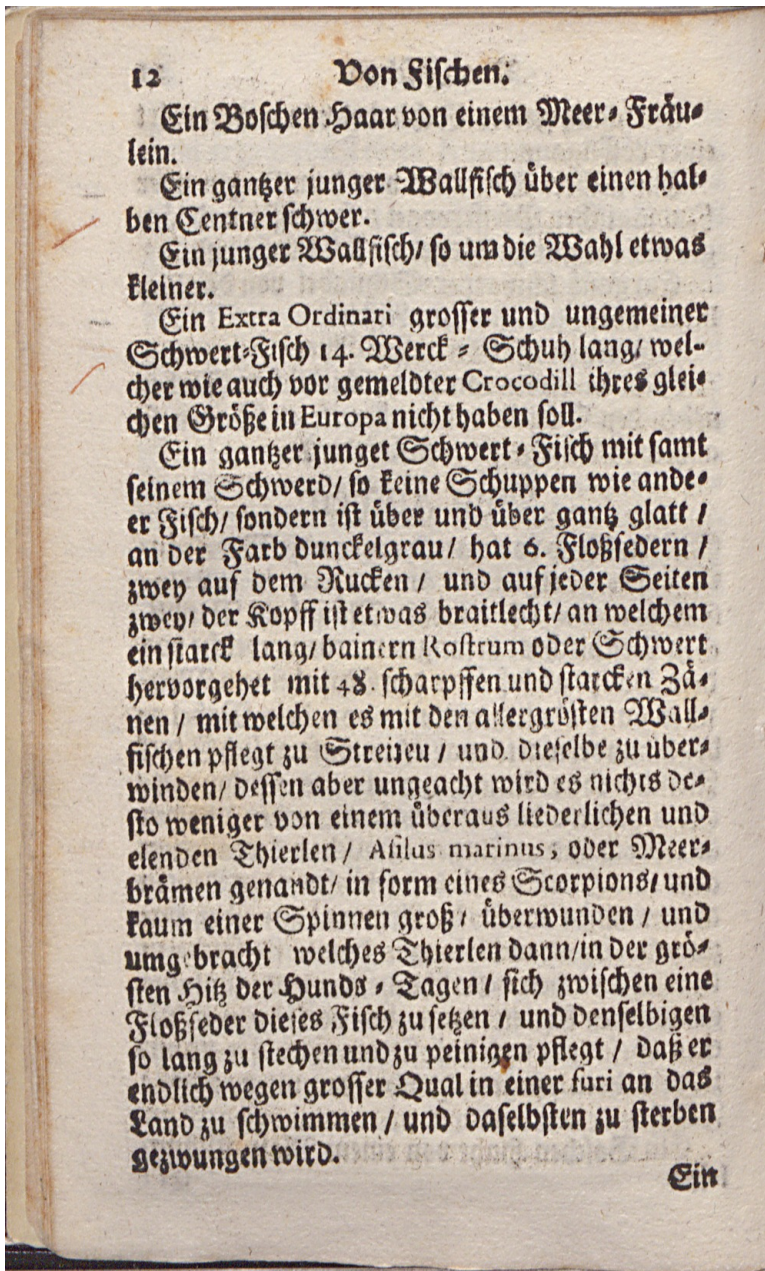 12 Von Fischen.
Ein Boschen Haar von einem Meer⸗Fräu⸗
lein.
Ein gantzer junger Wallfisch über einen hal⸗
ben Centner schwer.
Ein junger Wallfisch/ so um die Wahl etwas
kleiner.
Ein Extra Ordinari grosser und ungemeiner
Schwert⸗Fisch 14. Werck⸗Schuh lang/ wel⸗
cher wie auch vor gemeldter Crocodill ihres glei⸗
chen Größe in Europa nicht haben soll.
Ein gantzer junget Schwert⸗Fisch mit samt
seinem Schwerd/ so keine Schuppen wie ande⸗
er Fisch/ sondern ist über und über gantz glatt /
an der Farb dunckelgrau/ hat 6. Floßfedern /
zwey auf dem Rucken / und auf jeder Seiten
zwey/ der Kopff ist etwas braitlecht/ an welchem
ein starck lang/ bainern Rostrum oder Schwert
hervorgehet mit 48. scharpffen und starcken Zä⸗
nen / mit welchen es mit den allergrösten Wall⸗
fischen pflegt zu Streiten / und dieselbe zu über⸗
winden/ dessen aber ungeacht wird es nichts de⸗
sto weniger von einem überaus liederlichen und
elenden Thierlen/ Asilus marinus, oder Meer⸗
brämen genandt/ in form eines Scorpions/ und
kaum einer Spinnen groß/ überwunden / und
umgebracht welches Thierlen dann/ in der grö⸗
sten Hitz der Hunds⸗Tagen / sich zwischen eine
Floßfeder dieses Fisch zu setzen / und denselbigen
so lang zu stechen und zu peinigen pflegt / daß er
endlich wegen grosser Qual in einer furi an das
Land zu schwimmen / und daselbsten zu sterben
gezwungen wird.
Ein